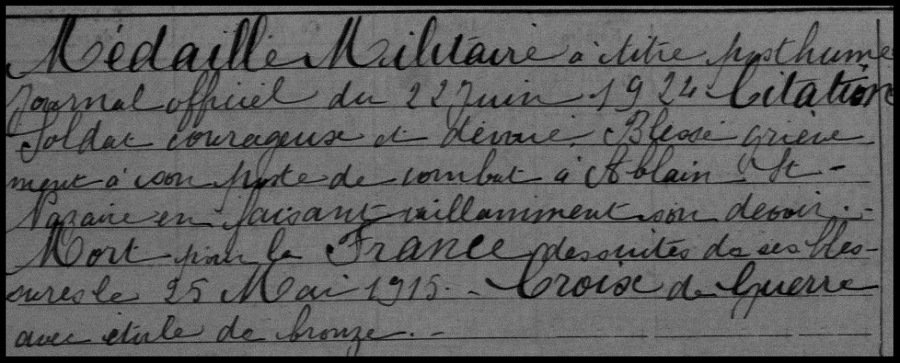 Médaille Militaire à titre posthume
Journal officiel du 22 Juin 1924 Citation
Soldat courageux et dévoué. Blessé griève
ment à son poste de combat à Ablain St-
Nazaire en faisant vaillamment son devoir.-
Mort pour la France des suites de ses bles-
sures le 25 Mai 1915.- Croix de Guerre
avec étoile de bronze.-